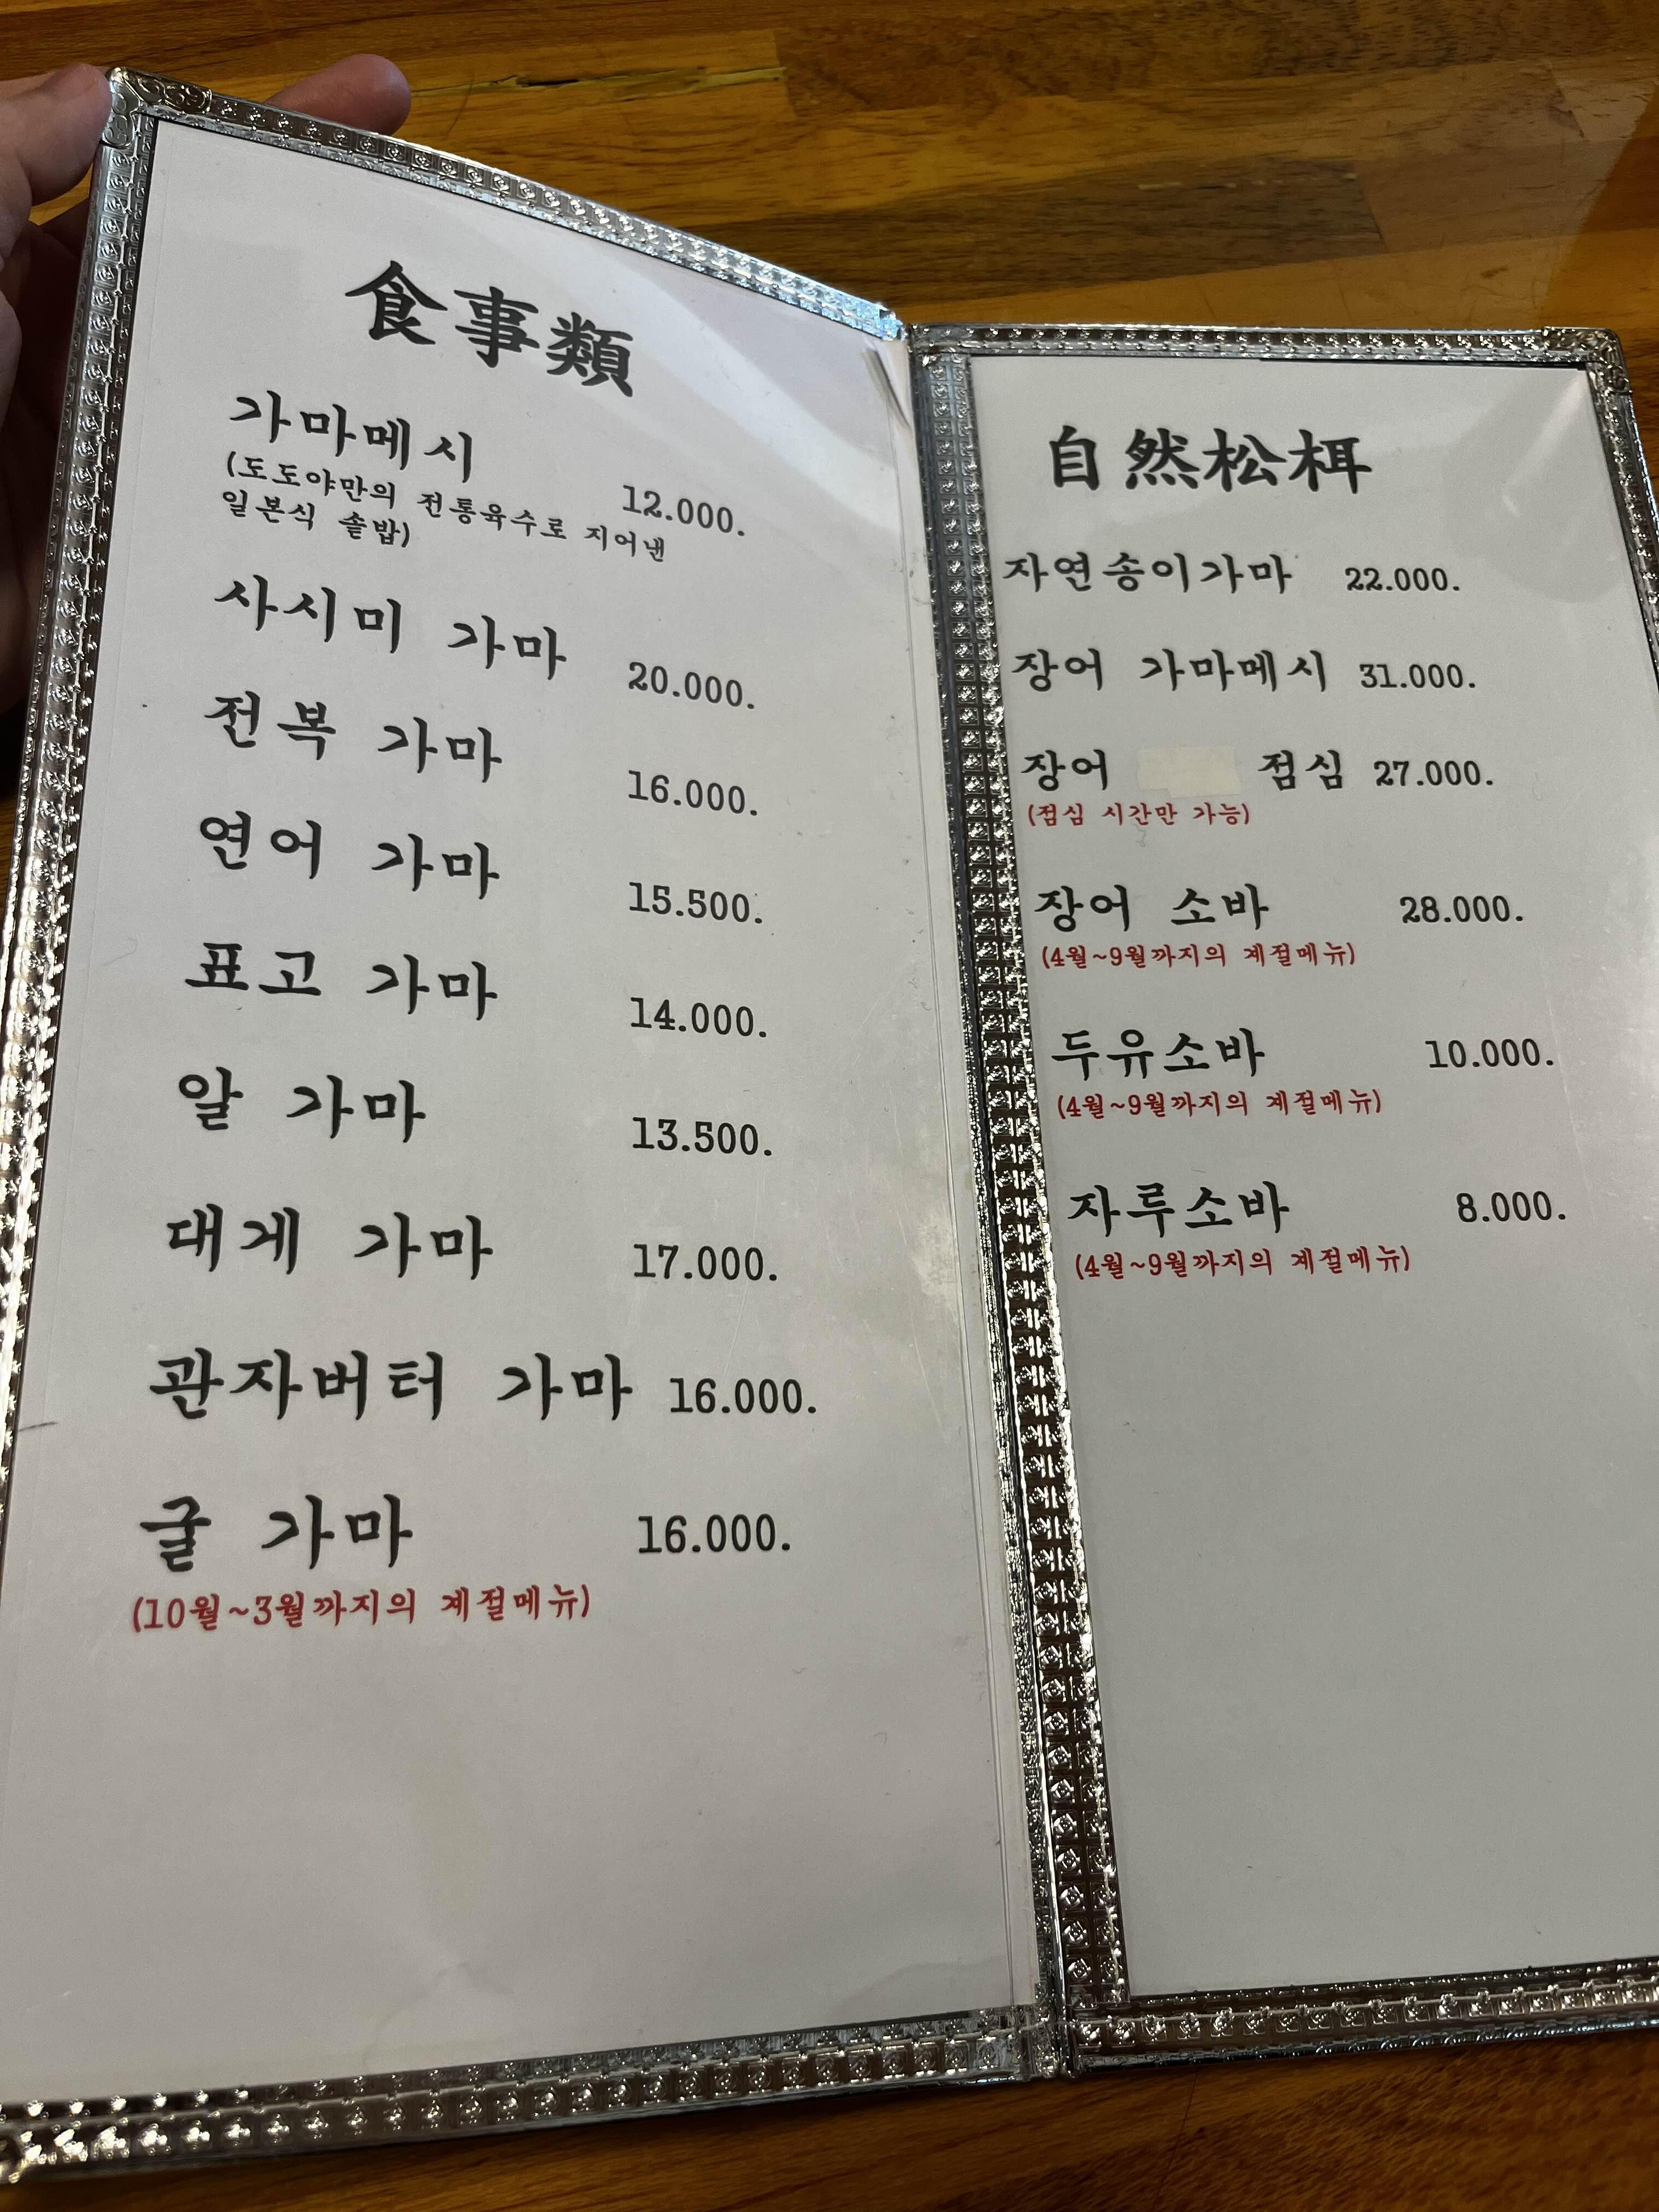 食事類
가마메시 12.000.
(도도야만의 전통육수로 지어낸
일본식 솥밥)
사시미 가마 20.000.
전복 가마 16.000.
연어 가마 15.500.
표고 가마 14.000.
알 가마 13.500.
대게 가마 17.000.
관자버터 가마 16.000.
굴 가마 16.000.
(10월~3월까지의 계절메뉴)
自然松栮
자연송이가마 22.000.
장어 가마메시 31.000.
장어 점심 27.000.
(점심 시간만 가능)
장어 소바 28.000.
(4월~9월까지의 계절메뉴)
두유소바 10.000.
(4월~9월까지의 계절메뉴)
자루소바 8.000.
(4월~9월까지의 계절메뉴)